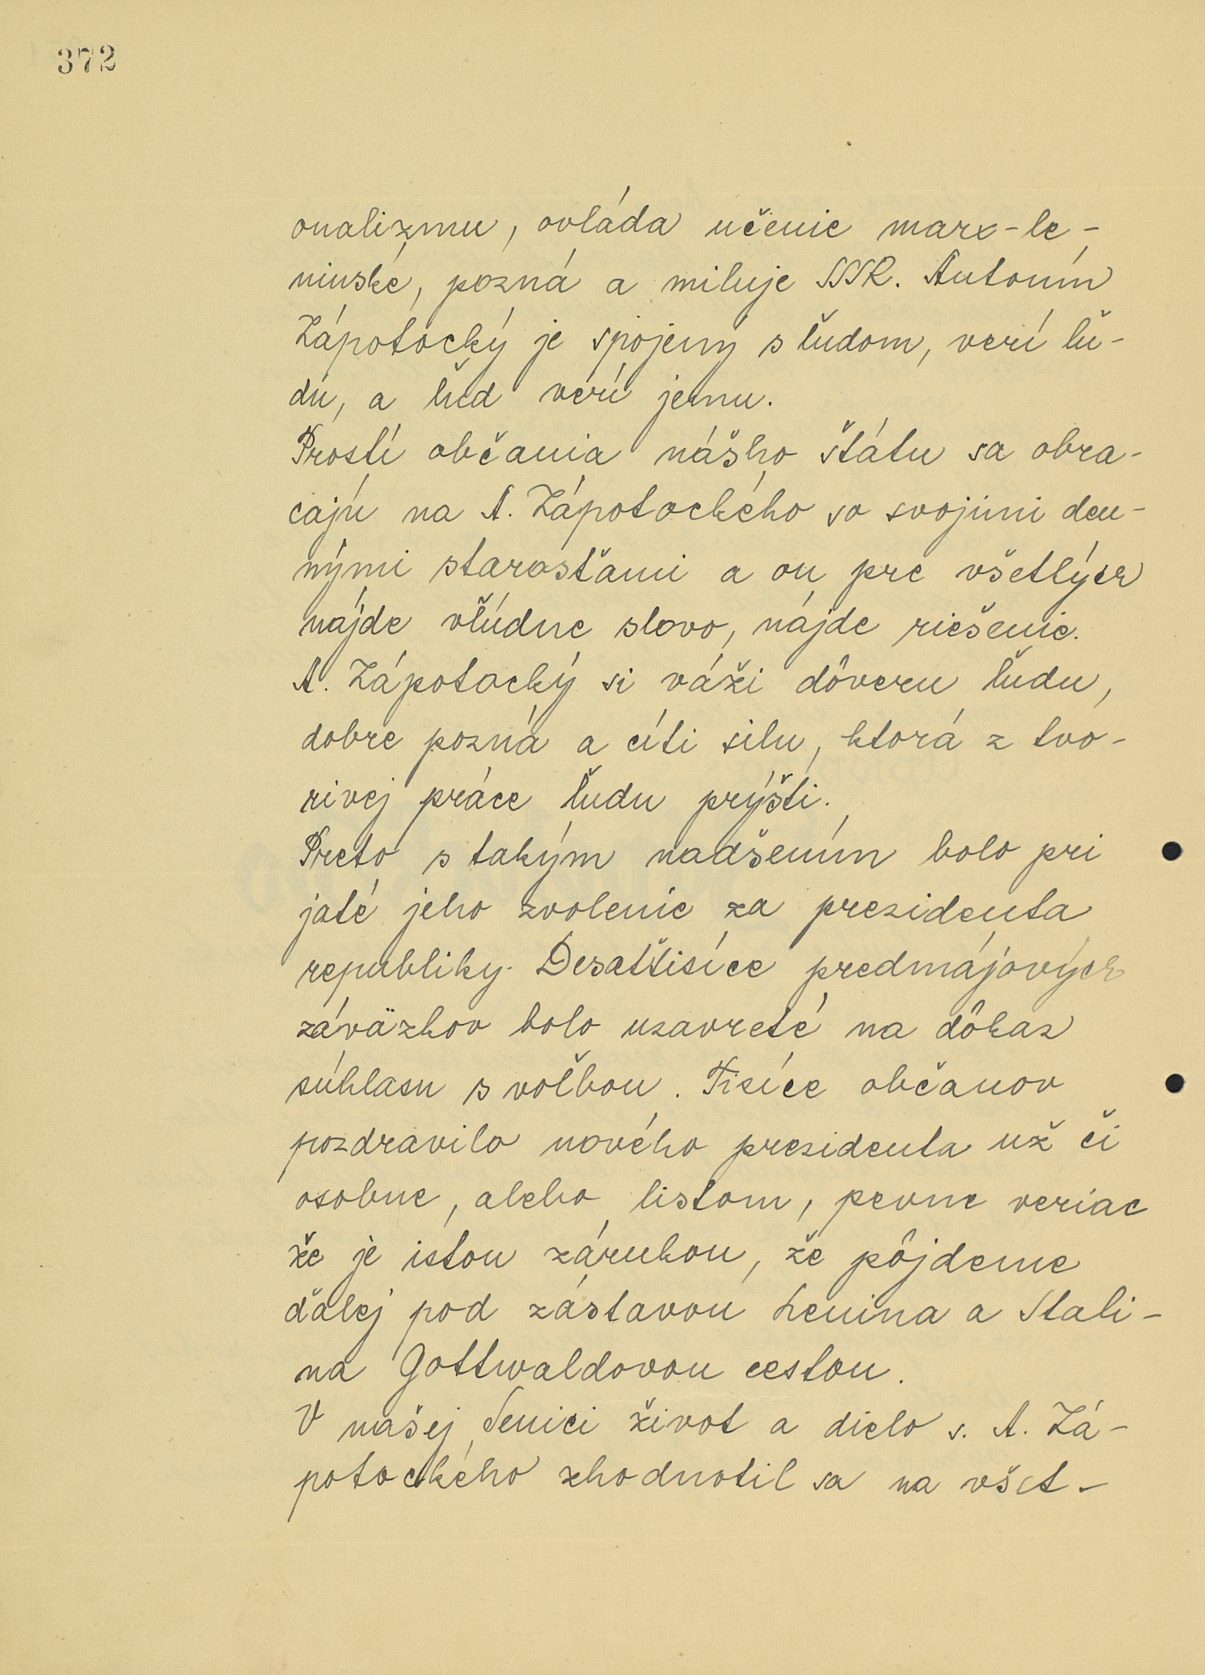 372
onalizmu, ovláda učenie marx-le-
ninské, pozná a miluje SSSR. Antonín
Zápotocký je spojený s ľudom, verí ľu-
du, a ľud verí jemu.
Prostí občania nášho štátu sa obra-
cajú na A. Zápotockého so svojimi den-
nými starosťami a on pre všetkých
nájde vľúdne slovo, nájde riešenie.
A. Zápotocký si váži dôveru ľudu,
dobre pozná a cíti silu, ktorá z tvo-
rivej práce ľudu prýšti.
Preto s takým nadšením bolo pri
jaté jeho zvolenie za prezidenta
republiky. Desaťtisíce predmájových
záväzkov bolo uzavreté na dôkaz
súhlasu s voľbou. Tisíce občanov
pozdravilo nového prezidenta už či
osobne, alebo listom, pevne veriac
že je istou zárukou, že pôjdeme
ďalej pod zástavou Lenina a Stali-
na Gottwaldovou cestou.
V našej Senici život a dielo s. A. Zá-
potockého zhodnotil sa na všet-